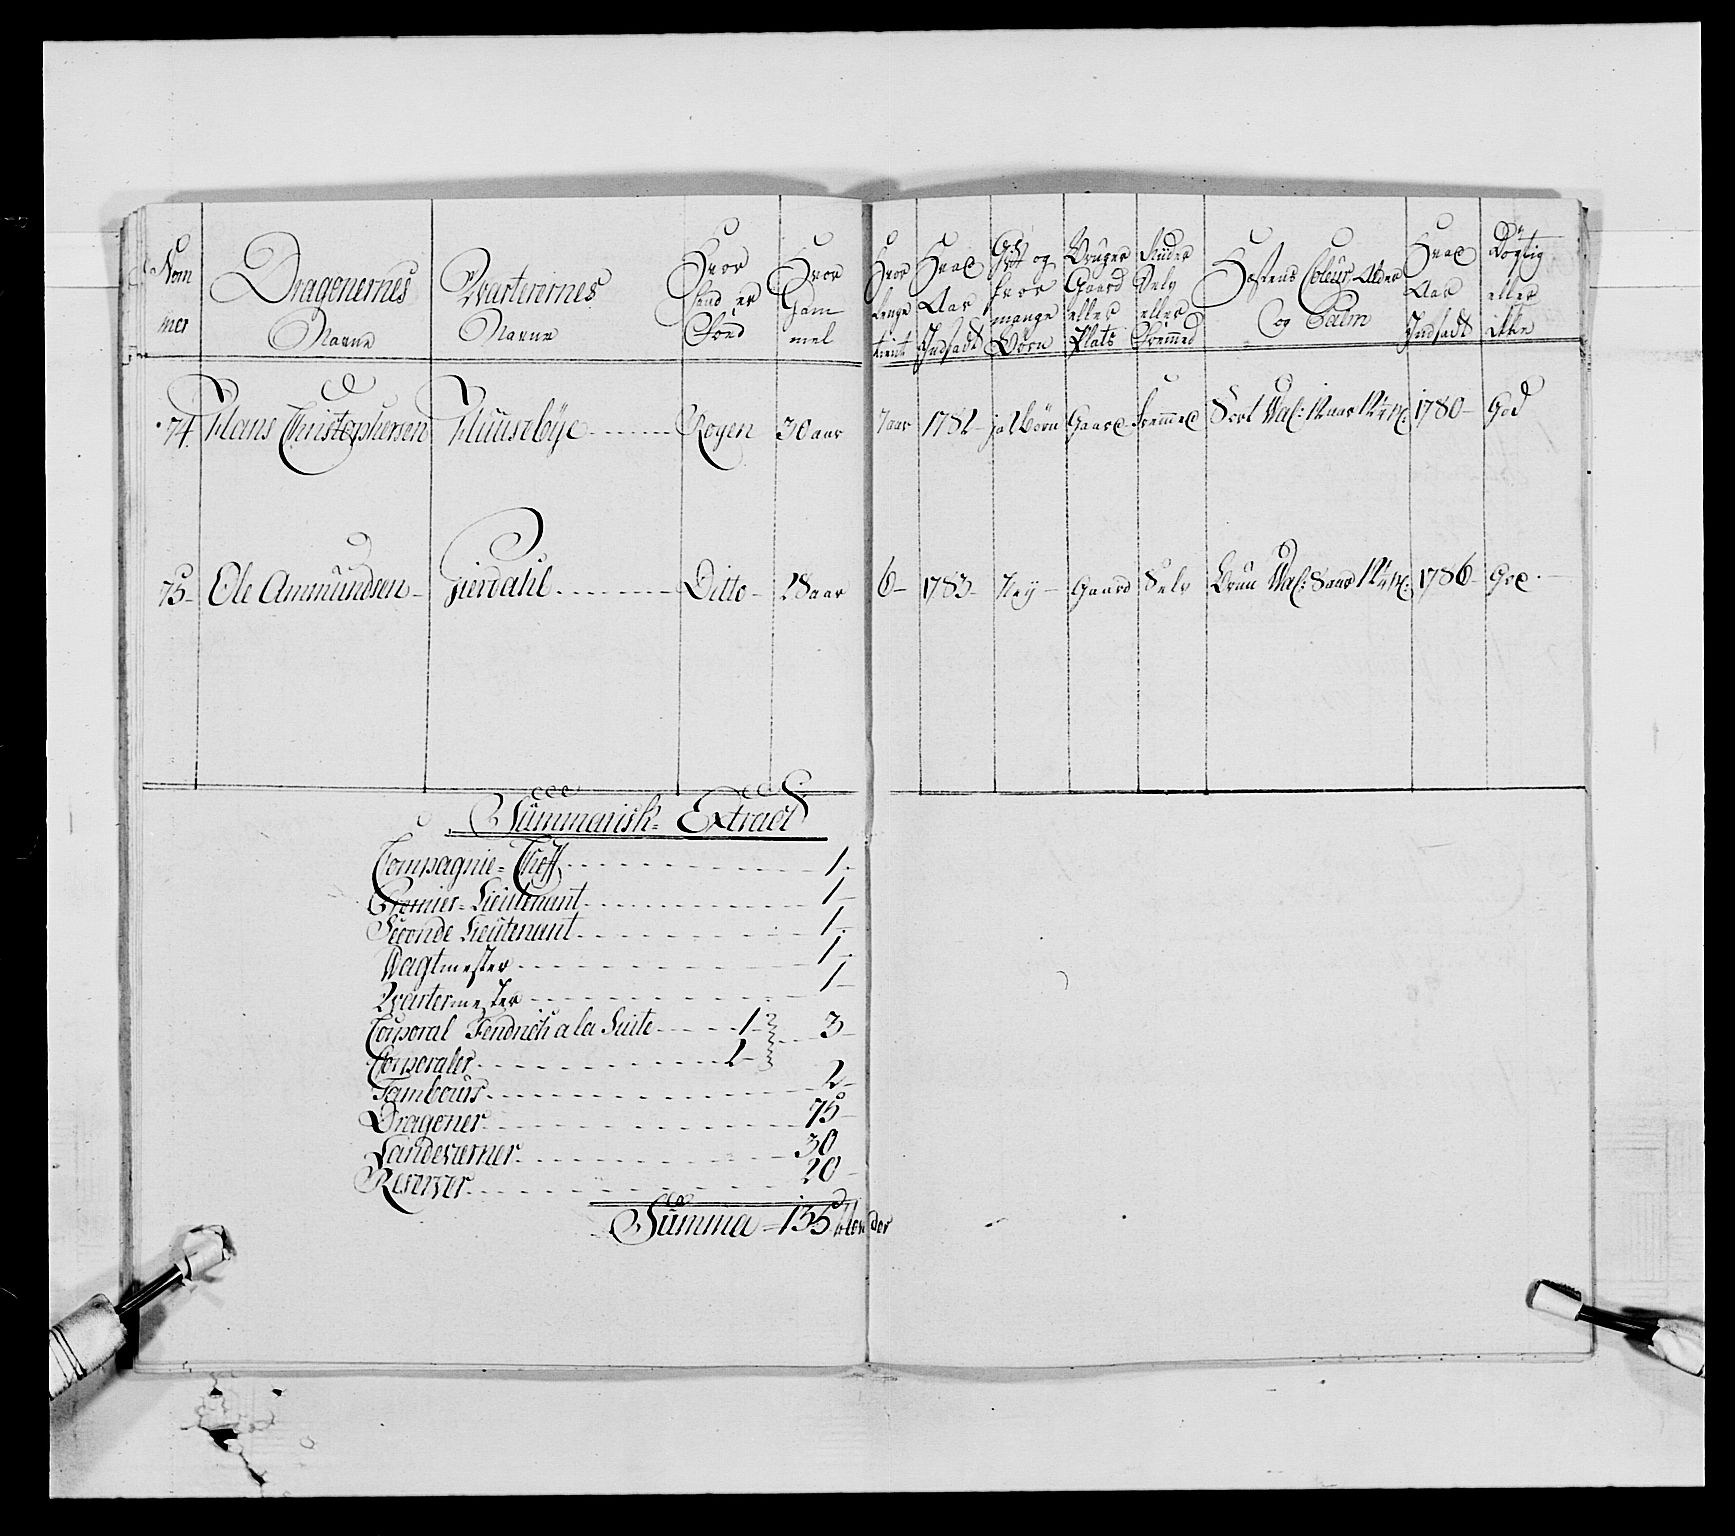 Nom
mer
Dragonernes
Navne
Qvarterernes
Navne
Hvor
hand er
Föed
Hvor
Gam
mel
Hvor
lenge
tient
Hvad
Aar
Indsadt
Gift og
hvor
mange
Börn
Bruger
Gaard
eller
Plats
Riider
Selv
eller
Fremmed
Hestens Coleur Alder
og Palm
Hvad
Aar
Indsadt
Dygtig
eller
ikke
74. Hans Christophersen Huusebye Röyen 30 aar 7 aar 1782 ja 2 börn Gaard fremmed Sort Val: 12 aar 1780 God
75 Ole Ammundsen Gierdahl Ditto 28 aar 6 1783 Ney Gaard Selv Bruun Val: 8 aar 1786 God
Summarisk Extract
Compagnie-Cheff 1
Premier-Lieutenant 1
Seconde Lieutenant 1
Wagtmester 1
Qvartermester 1
Corporal Fendrich a la Suite 1 3
Corporaler 2
Tambours 2
Dragoner 75
Landeværner 30
Reserver 20
Summa 135